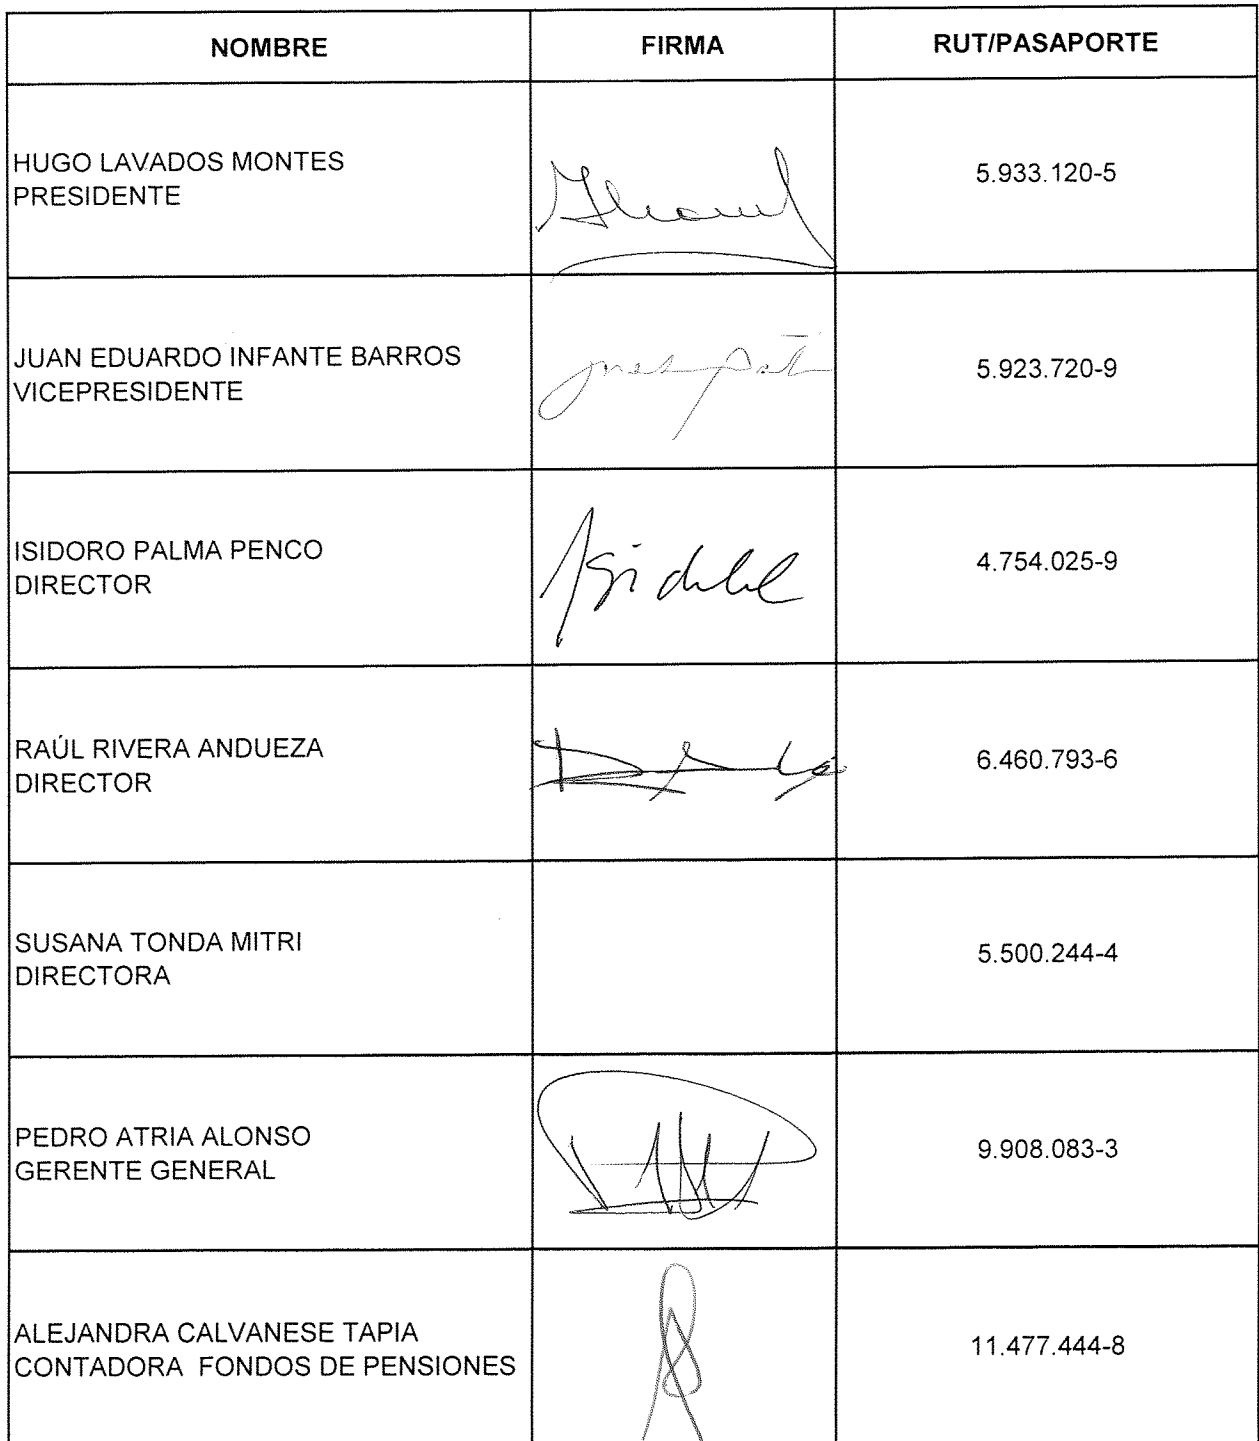 NOMBRE FIRMA RUT/PASAPORTE
HUGO LAVADOS MONTES
PRESIDENTE
5.933.120-5
JUAN EDUARDO INFANTE BARROS
VICEPRESIDENTE
5.923.720-9
ISIDORO PALMA PENCO
DIRECTOR
4.754.025-9
RAÚL RIVERA ANDUEZA
DIRECTOR
6.460.793-6
SUSANA TONDA MITRI
DIRECTORA
5.500.244-4
PEDRO ATRIA ALONSO
GERENTE GENERAL
9.908.083-3
ALEJANDRA CALVANESE TAPIA
CONTADORA FONDOS DE PENSIONES
11.477.444-8